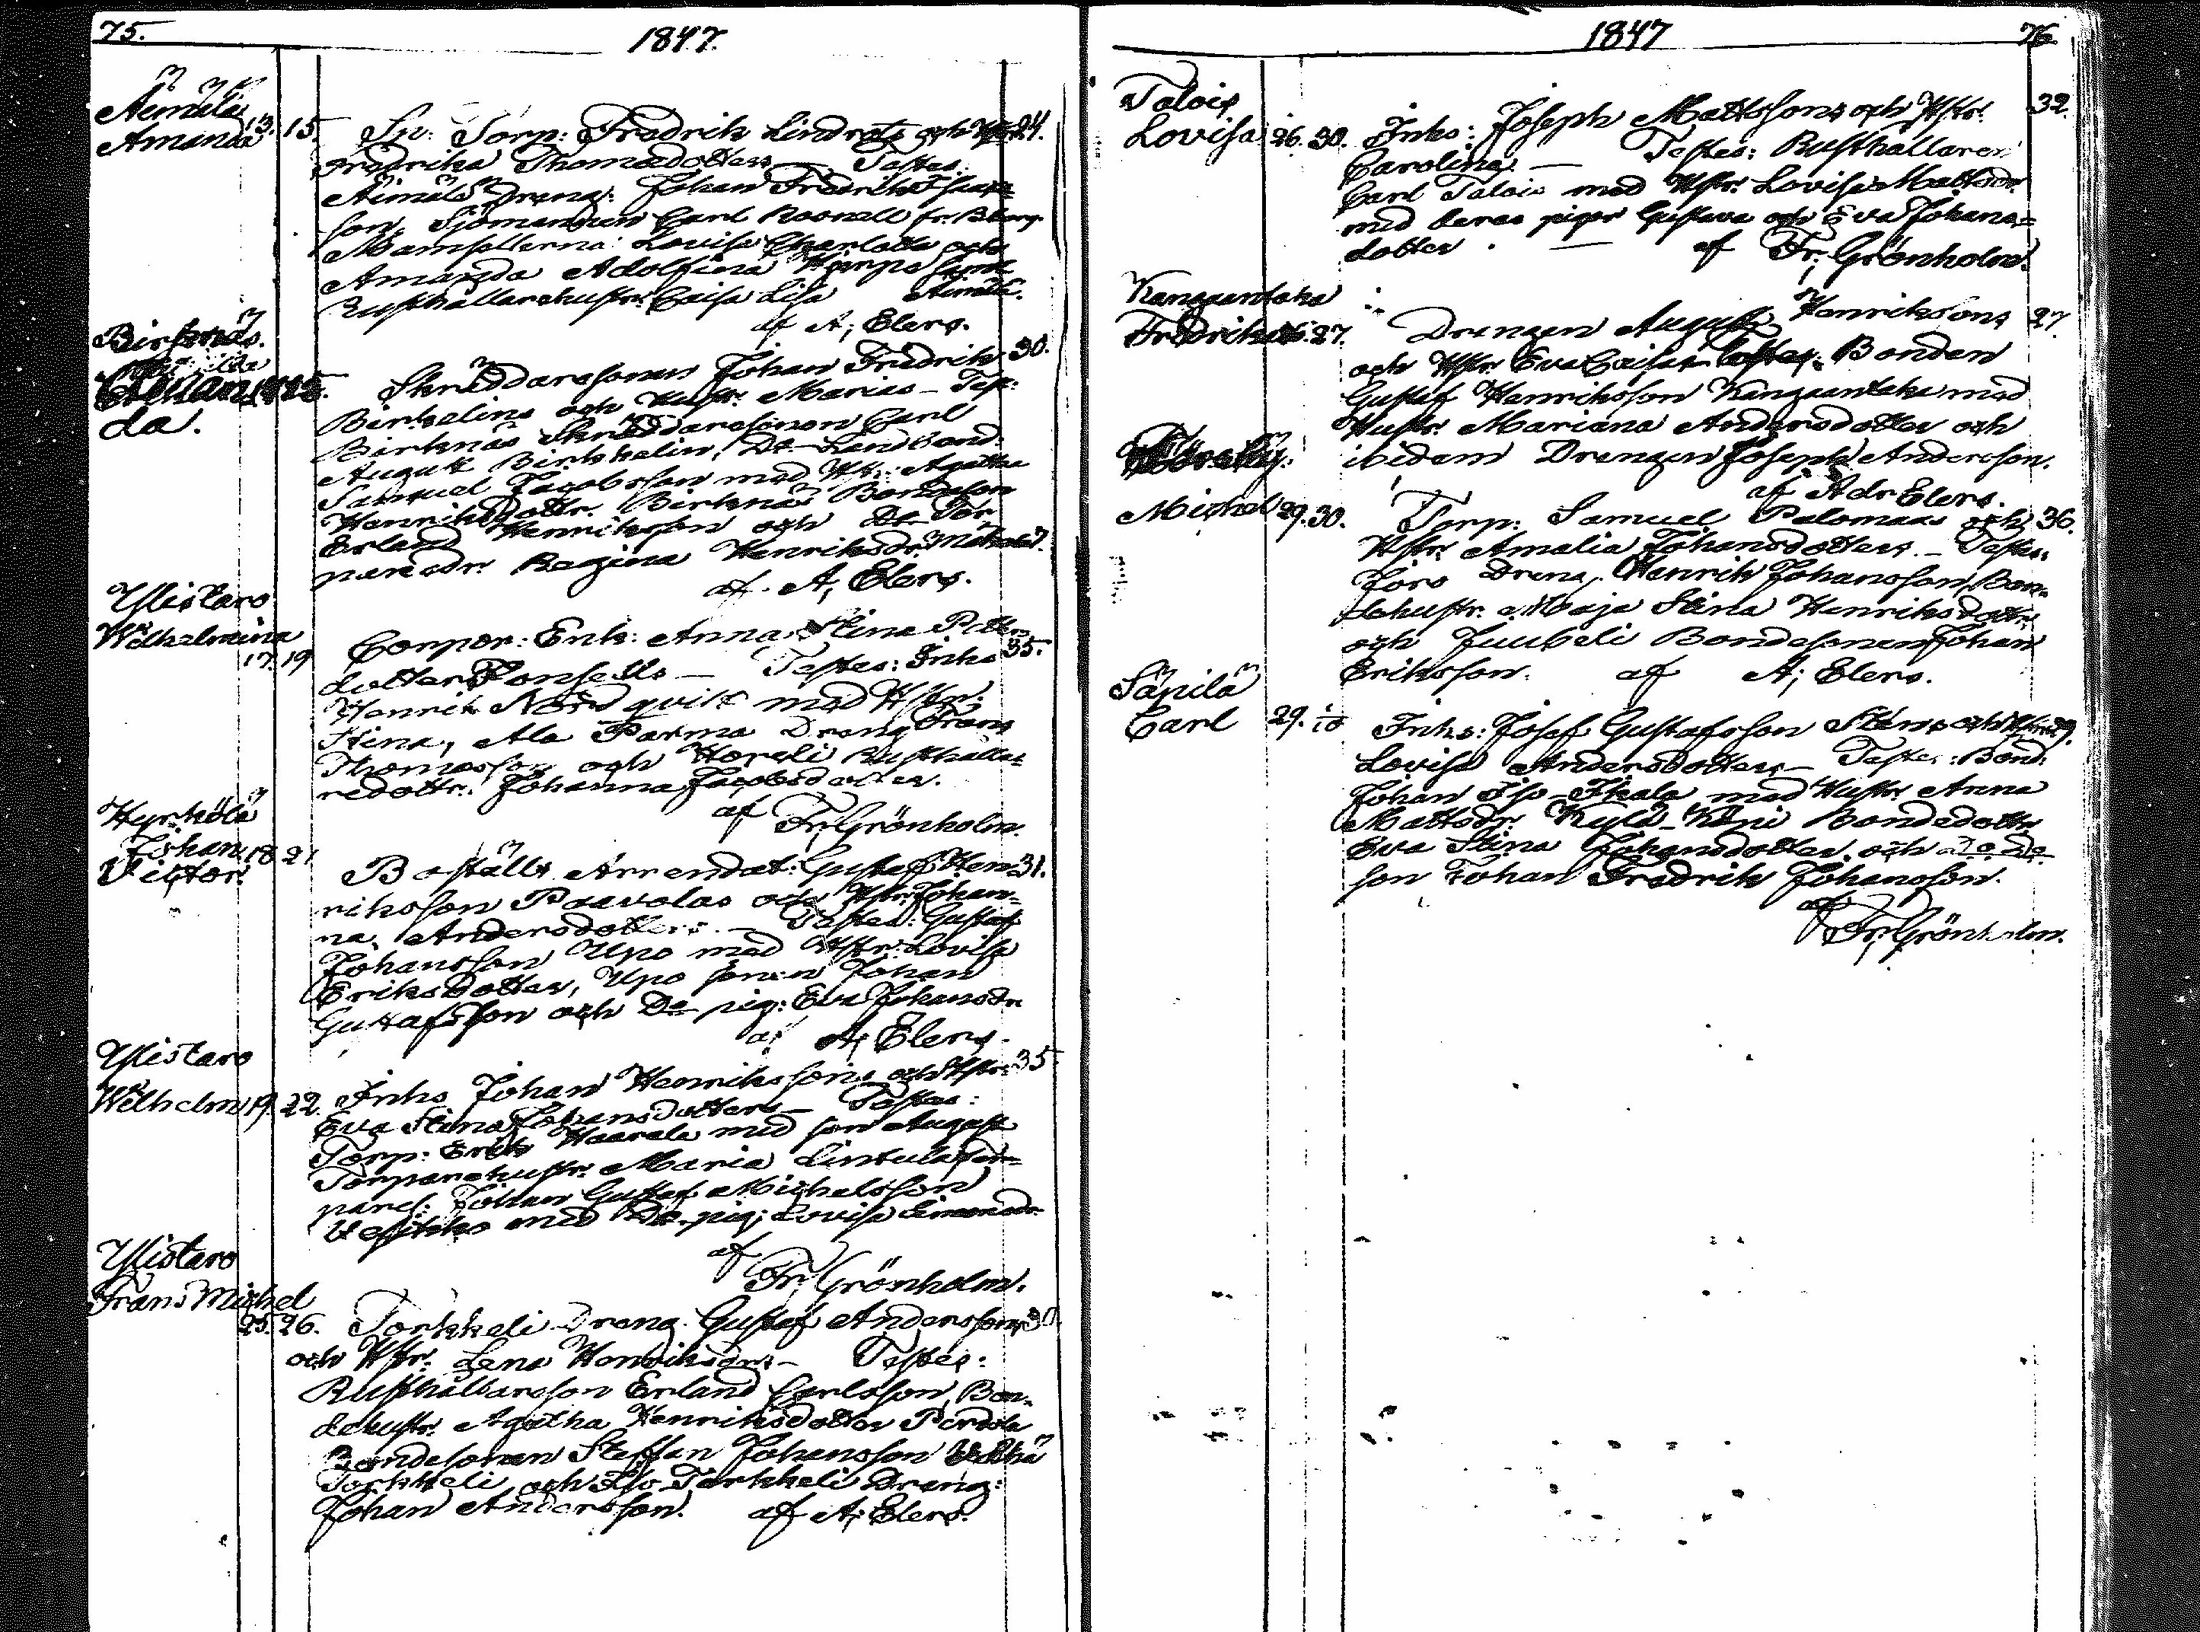 75.
1847.
Äimälä
Amanda 13. 15. Sv: Torp: Fredrik Lindrots och Hr 24.
Fredrika Thomædotters — Testes:
Äimälä Dreng: Johan Fredrik Isaks-
son, Sjömannen Carl Rosnell fr. Bborg
Mamsellerna Lovisa Charlotta och
Amanda Adolfina
Rusthållarehustr: Caisa Lisa Äimälä.
af A; Elers.
Birknäs.
da. Skräddaresonen Johan Fredrik 30.
Birkelins och Hustr. Marias — Test:
Birknäs Skräddaresonen Carl
August Birkelin, Do Landbond:
Samuel Jacobsson med Hr: Agatha
Henriksdottr. Birknäs Bondeson
Erland Henriksson och Do Tor
paredr. Regina Henriksdr.
af A; Elers.
Ylistaro
Wilhelmina
17. 19 Corpor: Enk: Anna Stina Petters 35.
dotters — Testes: Inhs
Henrik Nordqvist med Hstr.
Stina, Ala Parma Dreng Frans
Thomasson och Horeli Rusthålla-
redottr. Johanna Jacobsdotter.
af
Fr; Grönholm.
Hyrkölä
Johan 18 21
Victor. Boställs Arrendat: Gustaf Hen- 31.
riksson Paavolas och Hstr: Johan-
na Andersdotters. — Testes: Gustaf
Johansson Upo med Hstr: Lovisa
Eriksdotter, Upo sonen Johan
Gustafsson och Do pig: Eva Johansdr
af A; Elers.
Ylistaro
Wilhelm 19. 22. Inhs Johan Henrikssons och Hstr: 35.
Eva Stina Johansdotters — Testes:
Torp: Erik Haarala med son August
Torparehustr. Maria Lintula
pares: Johan Gustaf Michelsson
med Do pig: Lovisa Simonsdr.
af
Fr; Grönholm.
Ylistaro
Frans Michel
25. 26. Torkkeli Dreng Gustaf Anderssons 30.
och Hstr. Lena Henriksdrs — Testes:
Rusthållaresson Erland Carlsson, Bon-
dehustr. Agatha Henriksdotter
Bondesonen Steffan Johansson Vähä
Torkkeli och Iso Torkkeli Dreng:
Johan Andersson. af A; Elers.
1847
76
Talois
Lovisa 26. 30. Inhs: Joseph Mattssons och Hstr: 32.
Carolina — Testes: Rusthållaren
Carl Talois med Hstr. Lovisa Mattsdr.
med deras pigor Gustava och Eva Johans-
dotter. — af Fr; Grönholm.
Kangaantaka
Fredrik 26. 27. Drengen August Henrikssons 27
och Hstr. Eva Caisas Testes: Bonden
Gustaf Henriksson Kangaantaka med
Hustr. Mariana Andersdotter och
ibidem Drengen Joseph Andersson.
af Adr Elers.
Michel 29. 30. Torp: Samuel Palomaas och 36.
Hstr. Amalia Johansdotters. — Testes:
Joro Dreng. Henrik Johansson, Bon-
dehustr. Maja Stina Henriksdottr.
och Juubeli Bondesonen Johan
Eriksson. af A; Elers.
Säpilä
Carl 29. 10 Inhs: Josef Gustafsson Stens och Hstr 29.
Lovisa Andersdotters — Testes: Bond:
Johan Iso-Skala med Hustr. Anna
Mattsdr. Kylä-Köni Bondedottr
Eva Stina Johansdotter och Do Do
son Johan Fredrik Johansson.
af
Fr; Grönholm.